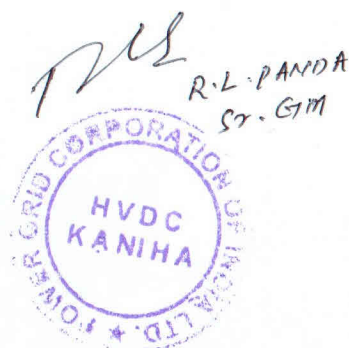 R.L. PANDA
Sr. GM
POWER GRID CORPORATION OF INDIA LTD. ★
HVDC
KANIHA